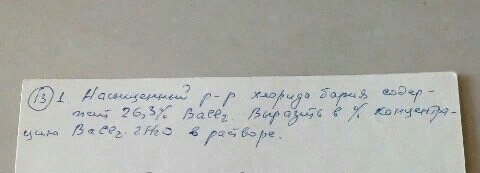 13 1 Насыщенный р-р хлорида бария содер-
жит 26,3% BaCl2. Выразить в % концентра-
цию BaCl2·2H2O в растворе.